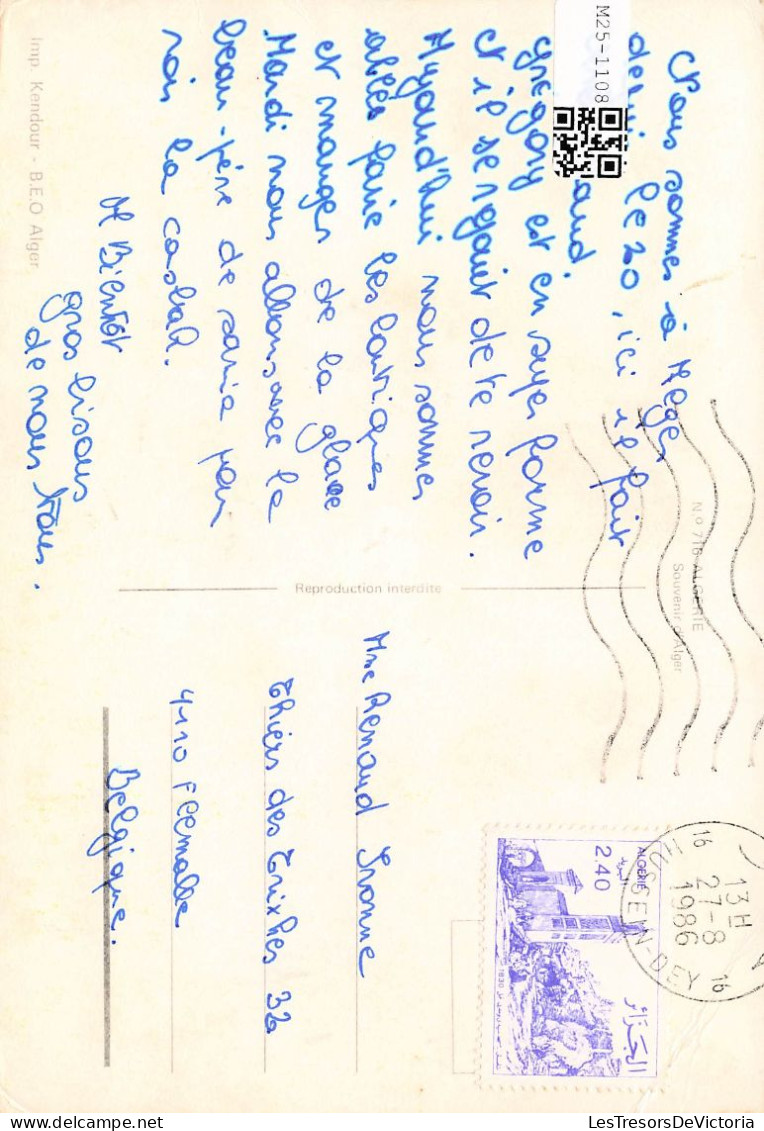 Nous sommes à Alger
depuis le 20, ici il fait
aud.
Grégory est en super forme
et il se rejouit de te revoir.
Aujourd'hui nous sommes
allés faire les boutiques
et manger de la glace
Mardi nous allons avec le
beau-père de
rois la casbah.
A Bientôt
gros bisous
de nous tous.
Imp. Kendour - B.E.O Alger
Nº 716 ALGERIE
Souvenir d'Alger
Reproduction interdite
Mme Renaud Yvonne
Thiers des Trixhes 32
4110 Flemalle
Belgique.
ALGERIE
2,40
الجزائر
1830
13H
27-8
1986
16
16
HUSSEIN-DEY
M25-1108
LesTresorsDeVictoria